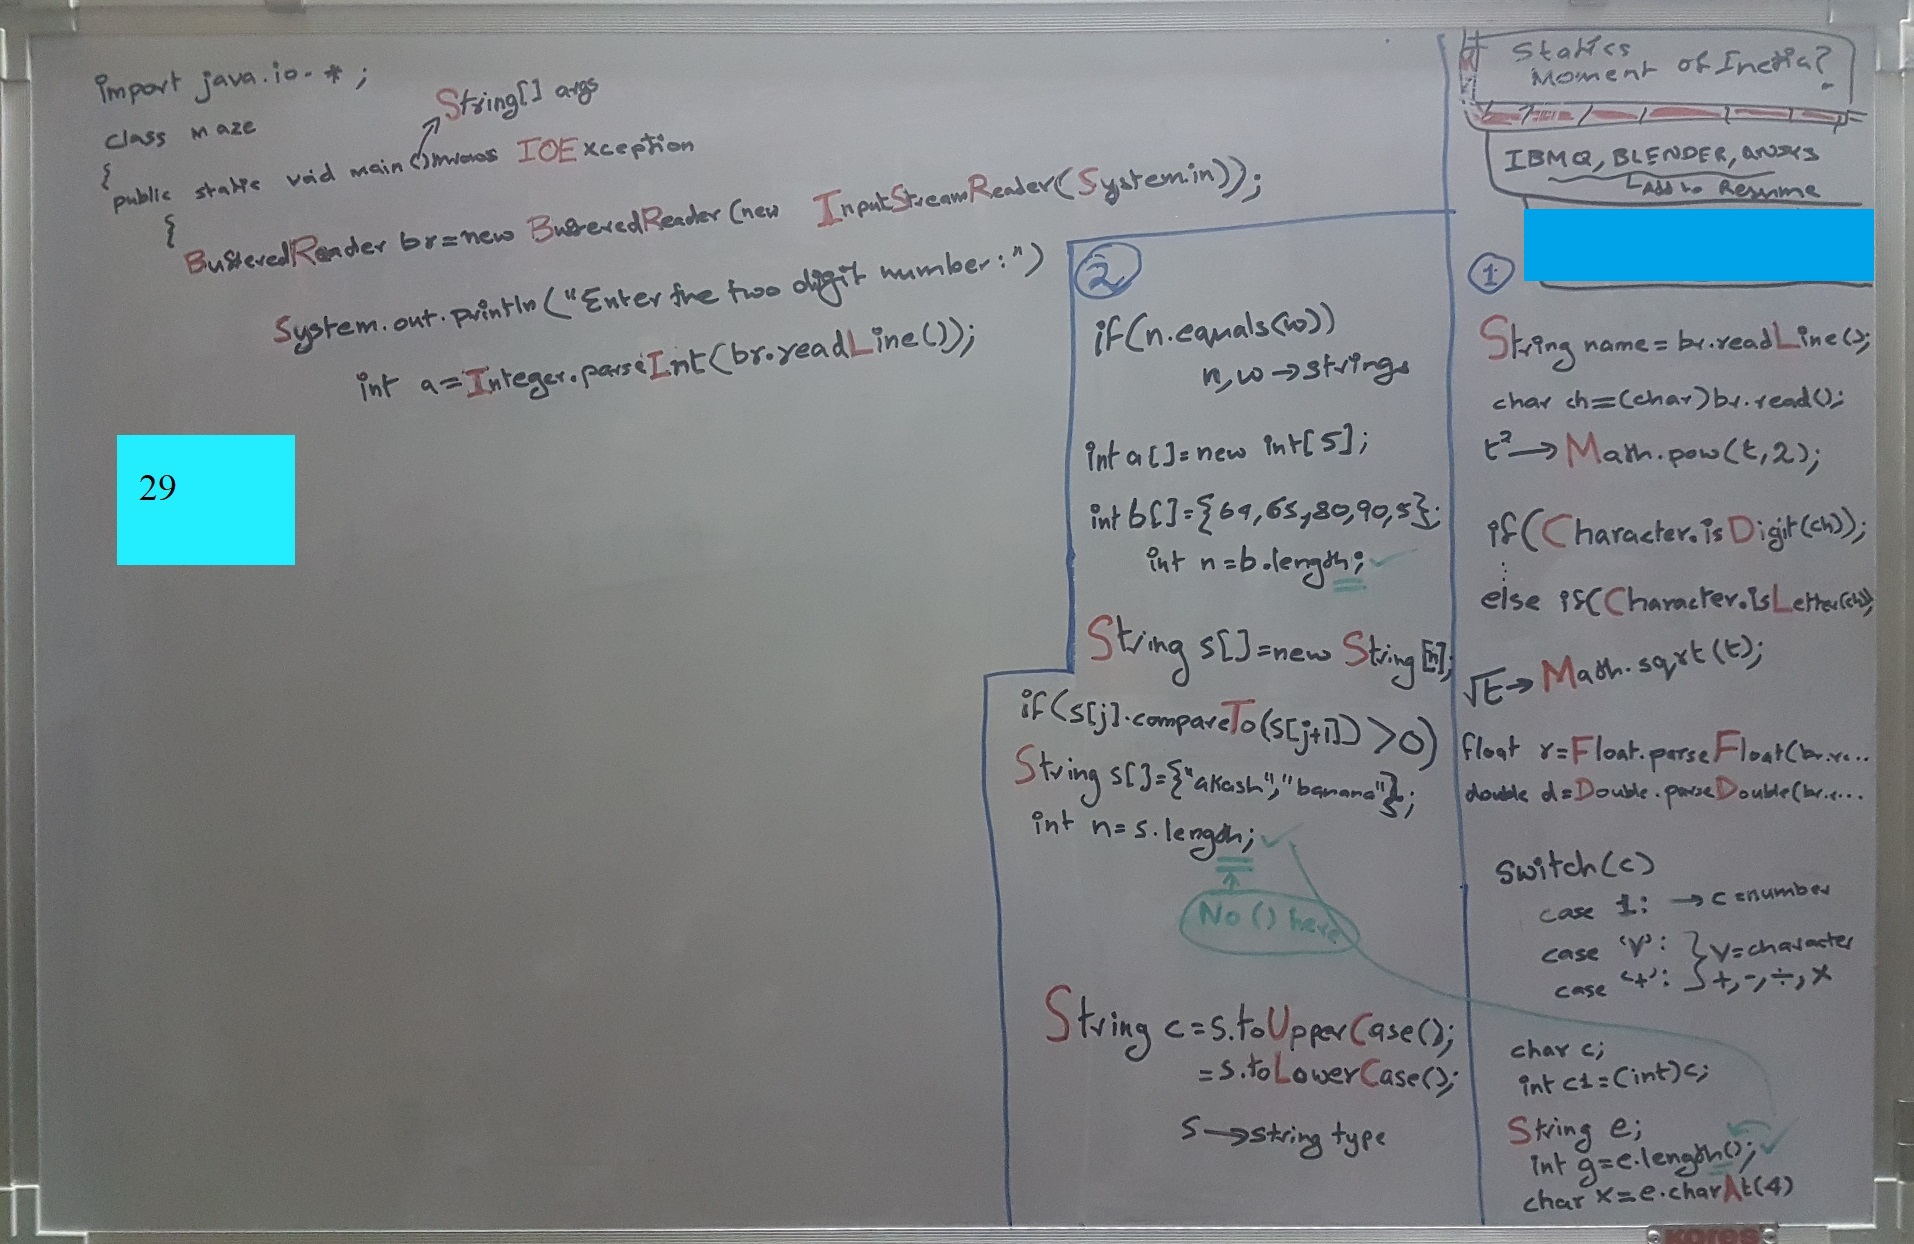 import java.io.*;
class maze
{
String[] args
public static void main() throws IOException
{
BufferedReader br=new BufferedReader(new InputStreamReader(System.in));
System.out.println("Enter the two digit number:")
int a=Integer.parseInt(br.readLine());
29
2
if(n.equals(w))
n,w→strings
int a[]=new int[5];
int b[]={69,65,80,90,5};
int n=b.length;
String s[]=new String[n];
if(s[j].compareTo(s[j+1])>0)
String s[]={"akash","banana"};
int n=s.length;
No () here
String c=s.toUpperCase();
=s.toLowerCase();
s→string type
Statics
Moment of Inertia?
IBMQ, BLENDER, ANSYS
Add to Resume
1
String name=br.readLine();
char ch=(char)br.read();
t²→Math.pow(t,2);
if(Character.isDigit(ch));
:
else if(Character.isLetter(ch));
√t→Math.sqrt(t);
float r=Float.parseFloat(br.re...
double d=Double.parseDouble(br.r...
switch(c)
case 1: →c=number
case 'Y': } Y=character
case '+': } +,-,÷,×
char c;
int c1=(int)c;
String e;
int g=e.length();
char x=e.charAt(4)
kores